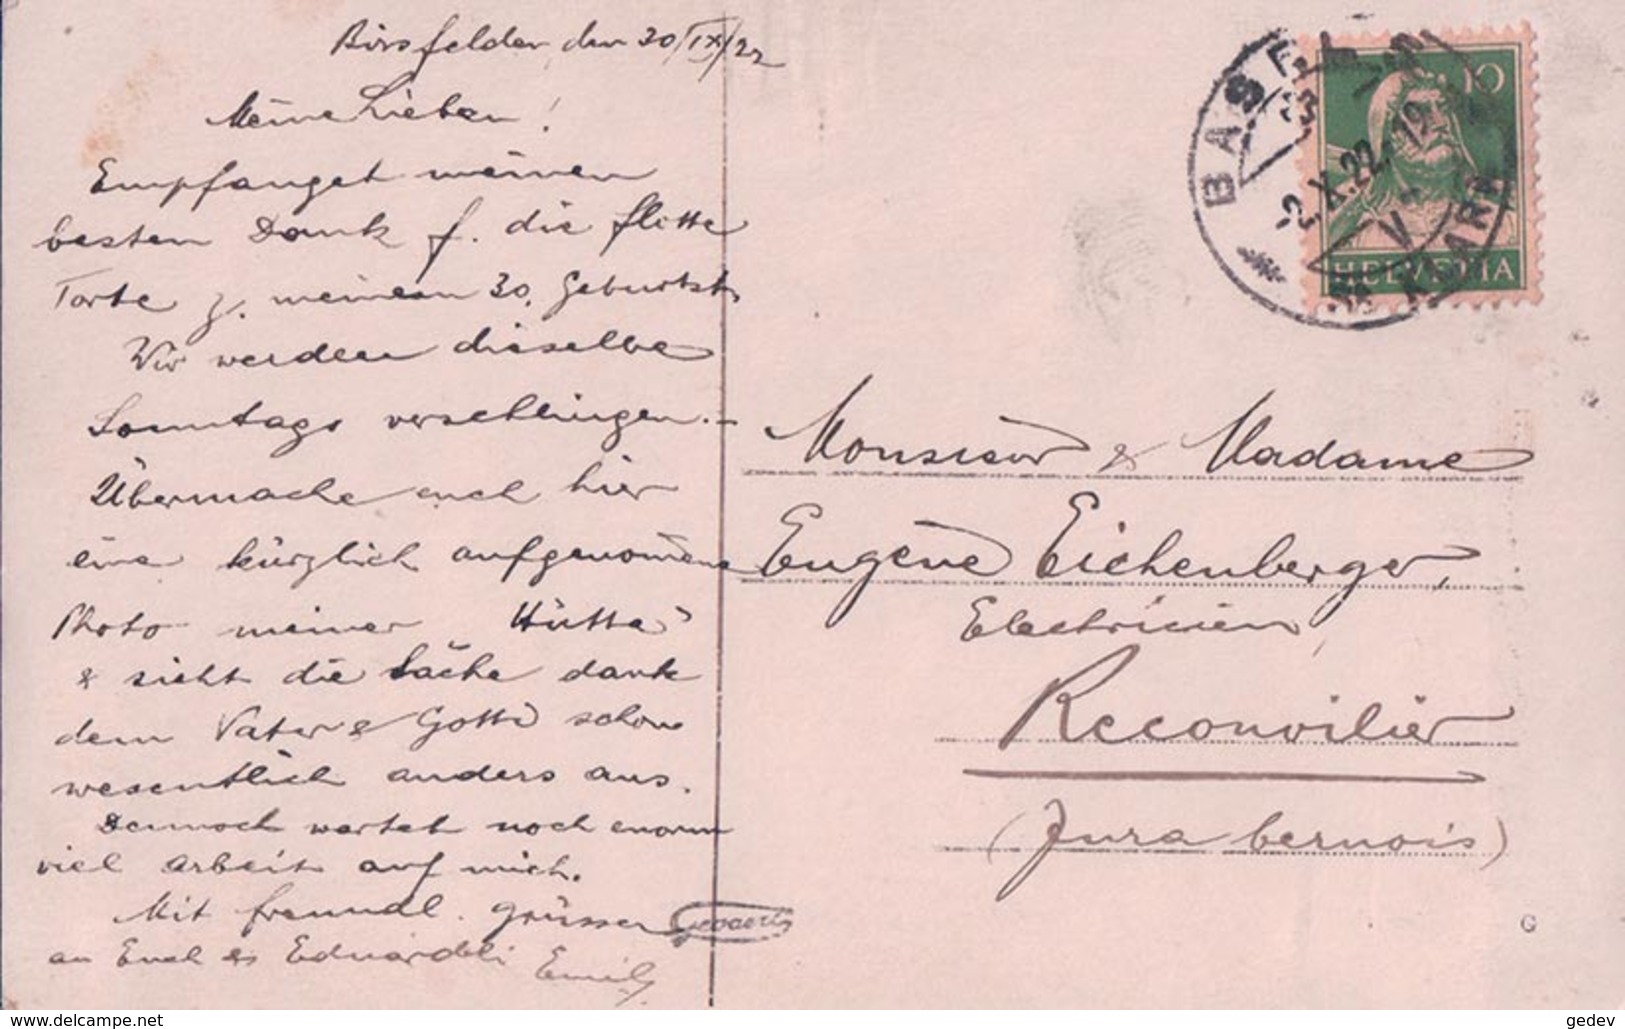 Birsfelden, den 30/IX/22
Meine Lieben!
Empfanget meinen
besten Dank f. die flotte
Torte z. meinem 30. Geburtst.
Wir werden dieselbe
Sonntags verschlingen.-
Übermache euch hier
eine kürzlich aufgenom̄ene
Photo meiner "Hütte"
& sieht die Sache dank
dem Vater & Gotti schon
wesentlich anders aus.
Dennoch wartet noch enorm
viel Arbeit auf mich.
Mit freundl. Grüssen
an Euch & Eduardeli Emil
Gevaert
BASEL
-2.X.22.-19
V
KLARA
10
HELVETIA
Monsieur & Madame
Eugène Eichenberger,
Electricien,
Reconvilier
(Jura bernois)
G
www.delcampe.net
gedev